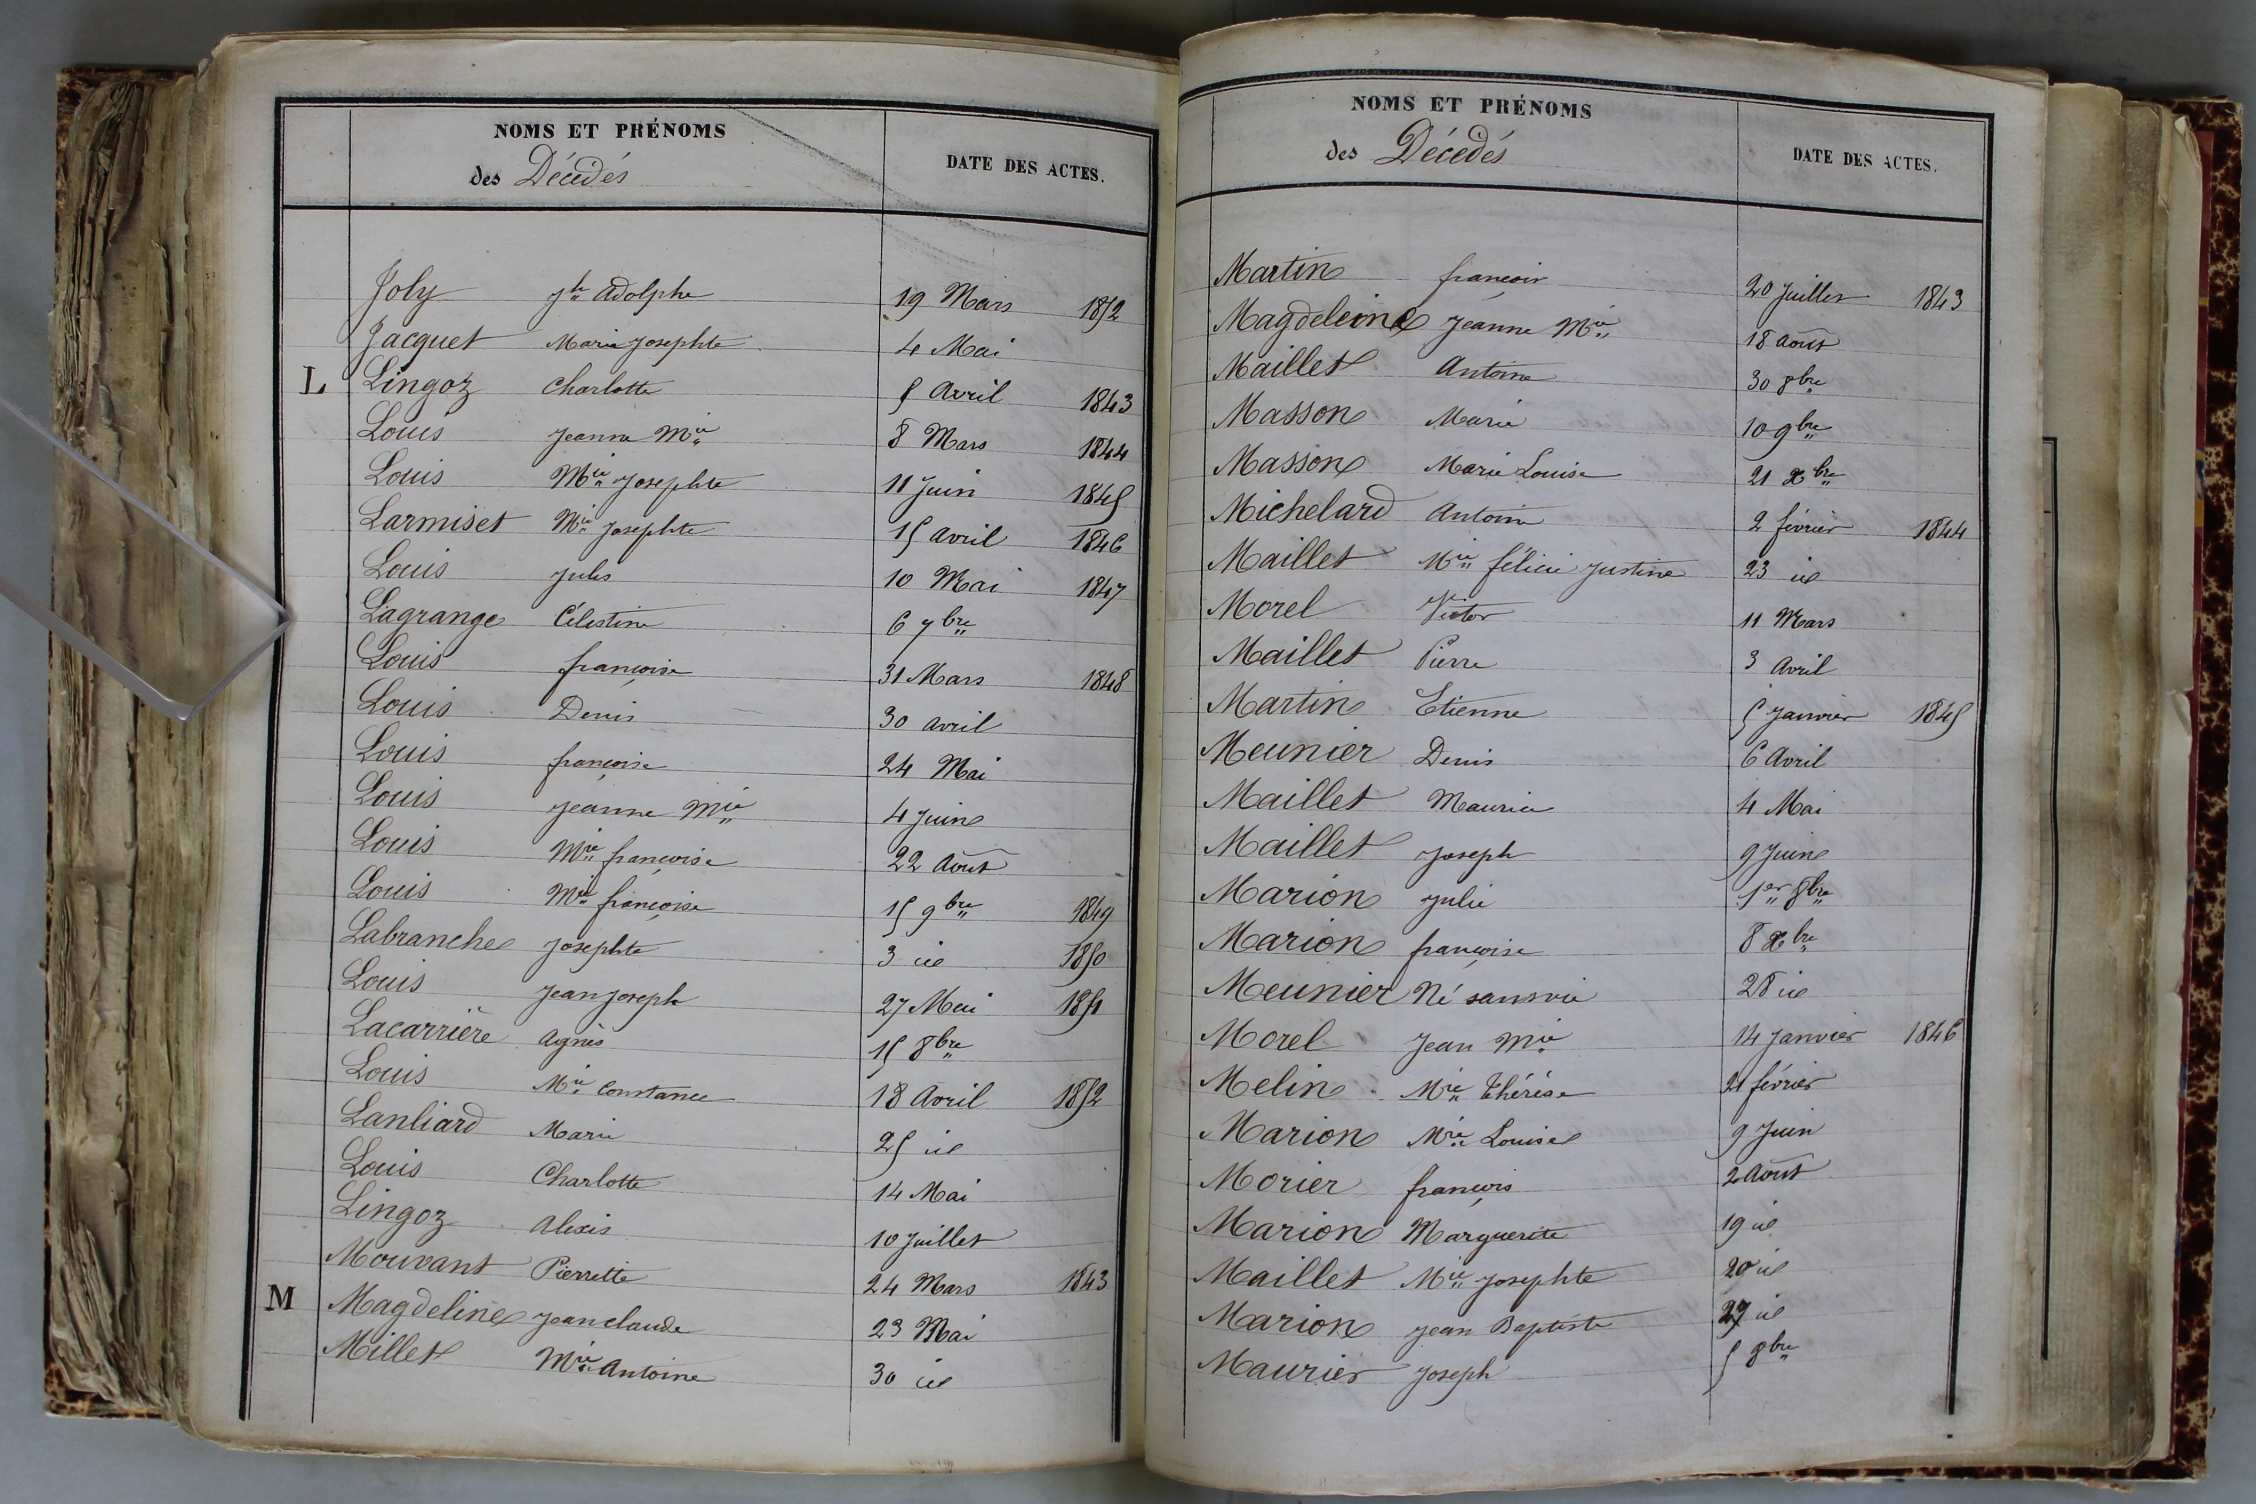 NOMS ET PRÉNOMS
des Décédés
DATE DES ACTES.
Joly Jh Adolphe 19 Mars 1852
Jacquet Marie Josephte 4 Mai
L Lingoz Charlotte 5 Avril 1843
Louis Jeanne Mie 8 Mars 1844
Louis Mie Josephte 11 Juin 1845
Larmiset Mie Josephte 15 Avril 1846
Louis Jules 10 Mai 1847
Lagrange Célestine 6 7bre
Louis françoise 31 Mars 1848
Louis Denis 30 Avril
Louis françoise 24 Mai
Louis Jeanne Mie 4 Juin
Louis Mie françoise 22 Août
Louis Mie françoise 15 9bre 1849
Labranche Josephte 3 id 1850
Louis Jean Joseph 27 Mai 1851
Lacarrière Agnès 15 8bre
Louis Mie Constance 18 Avril 1852
Lanliard Marie 25 id
Louis Charlotte 14 Mai
Lingoz Alexis 10 Juillet
Mouvant Pierrette 24 Mars 1843
M Magdeline Jean claude 23 Mai
Millet Mie Antoine 30 id
NOMS ET PRÉNOMS
des Décédés
DATE DES ACTES.
Martin françois 20 Juillet 1843
Magdeleine Jeanne Mie 18 Août
Maillet Antoine 30 8bre
Masson Marie 10 9bre
Masson Marie Louise 21 Xbre
Michelard Antoine 2 février 1844
Maillet Mie félicie Justine 23 id
Morel Victor 11 Mars
Maillet Pierre 3 Avril
Martin Etienne 5 Janvier 1845
Meunier Denis 6 Avril
Maillet Maurice 4 Mai
Maillet Joseph 9 Juin
Marion Julie 1er 8bre
Marion françoise 8 Xbre
Meunier Né sans vie 28 id
Morel Jean Mie 14 Janvier 1846
Melin Mie Thérèse 21 février
Marion Mie Louise 9 Juin
Morier françois 2 Août
Marion Marguerite 19 id
Maillet Mie Josephte 20 id
Marion Jean Baptiste 27 id
Maurier Joseph 5 8bre